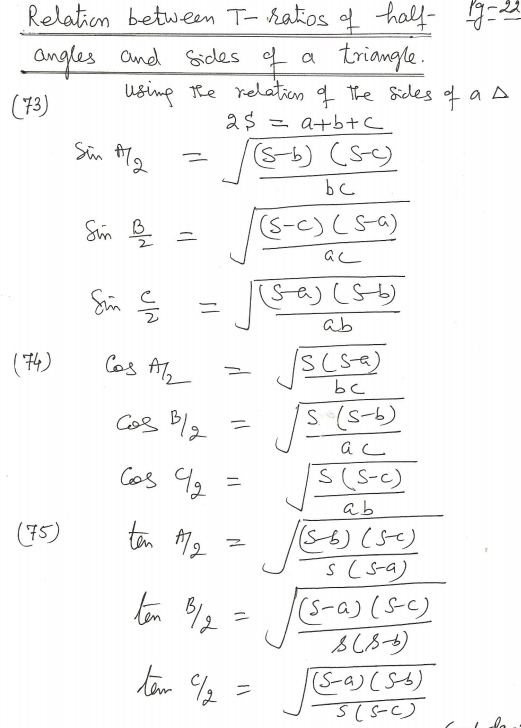 Relation between T-ratios of half- Pg-22
angles and sides of a triangle.
(73) Using the relation of the sides of a Δ
2S = a+b+c
Sin A/2 = √((S-b) (S-c) / bc)
Sin B/2 = √((S-c) (S-a) / ac)
Sin C/2 = √((S-a) (S-b) / ab)
(74) Cos A/2 = √(S(S-a) / bc)
Cos B/2 = √(S (S-b) / ac)
Cos C/2 = √(S (S-c) / ab)
(75) tan A/2 = √((S-b) (S-c) / S (S-a))
tan B/2 = √((S-a) (S-c) / S(S-b))
tan C/2 = √((S-a) (S-b) / S (S-c))